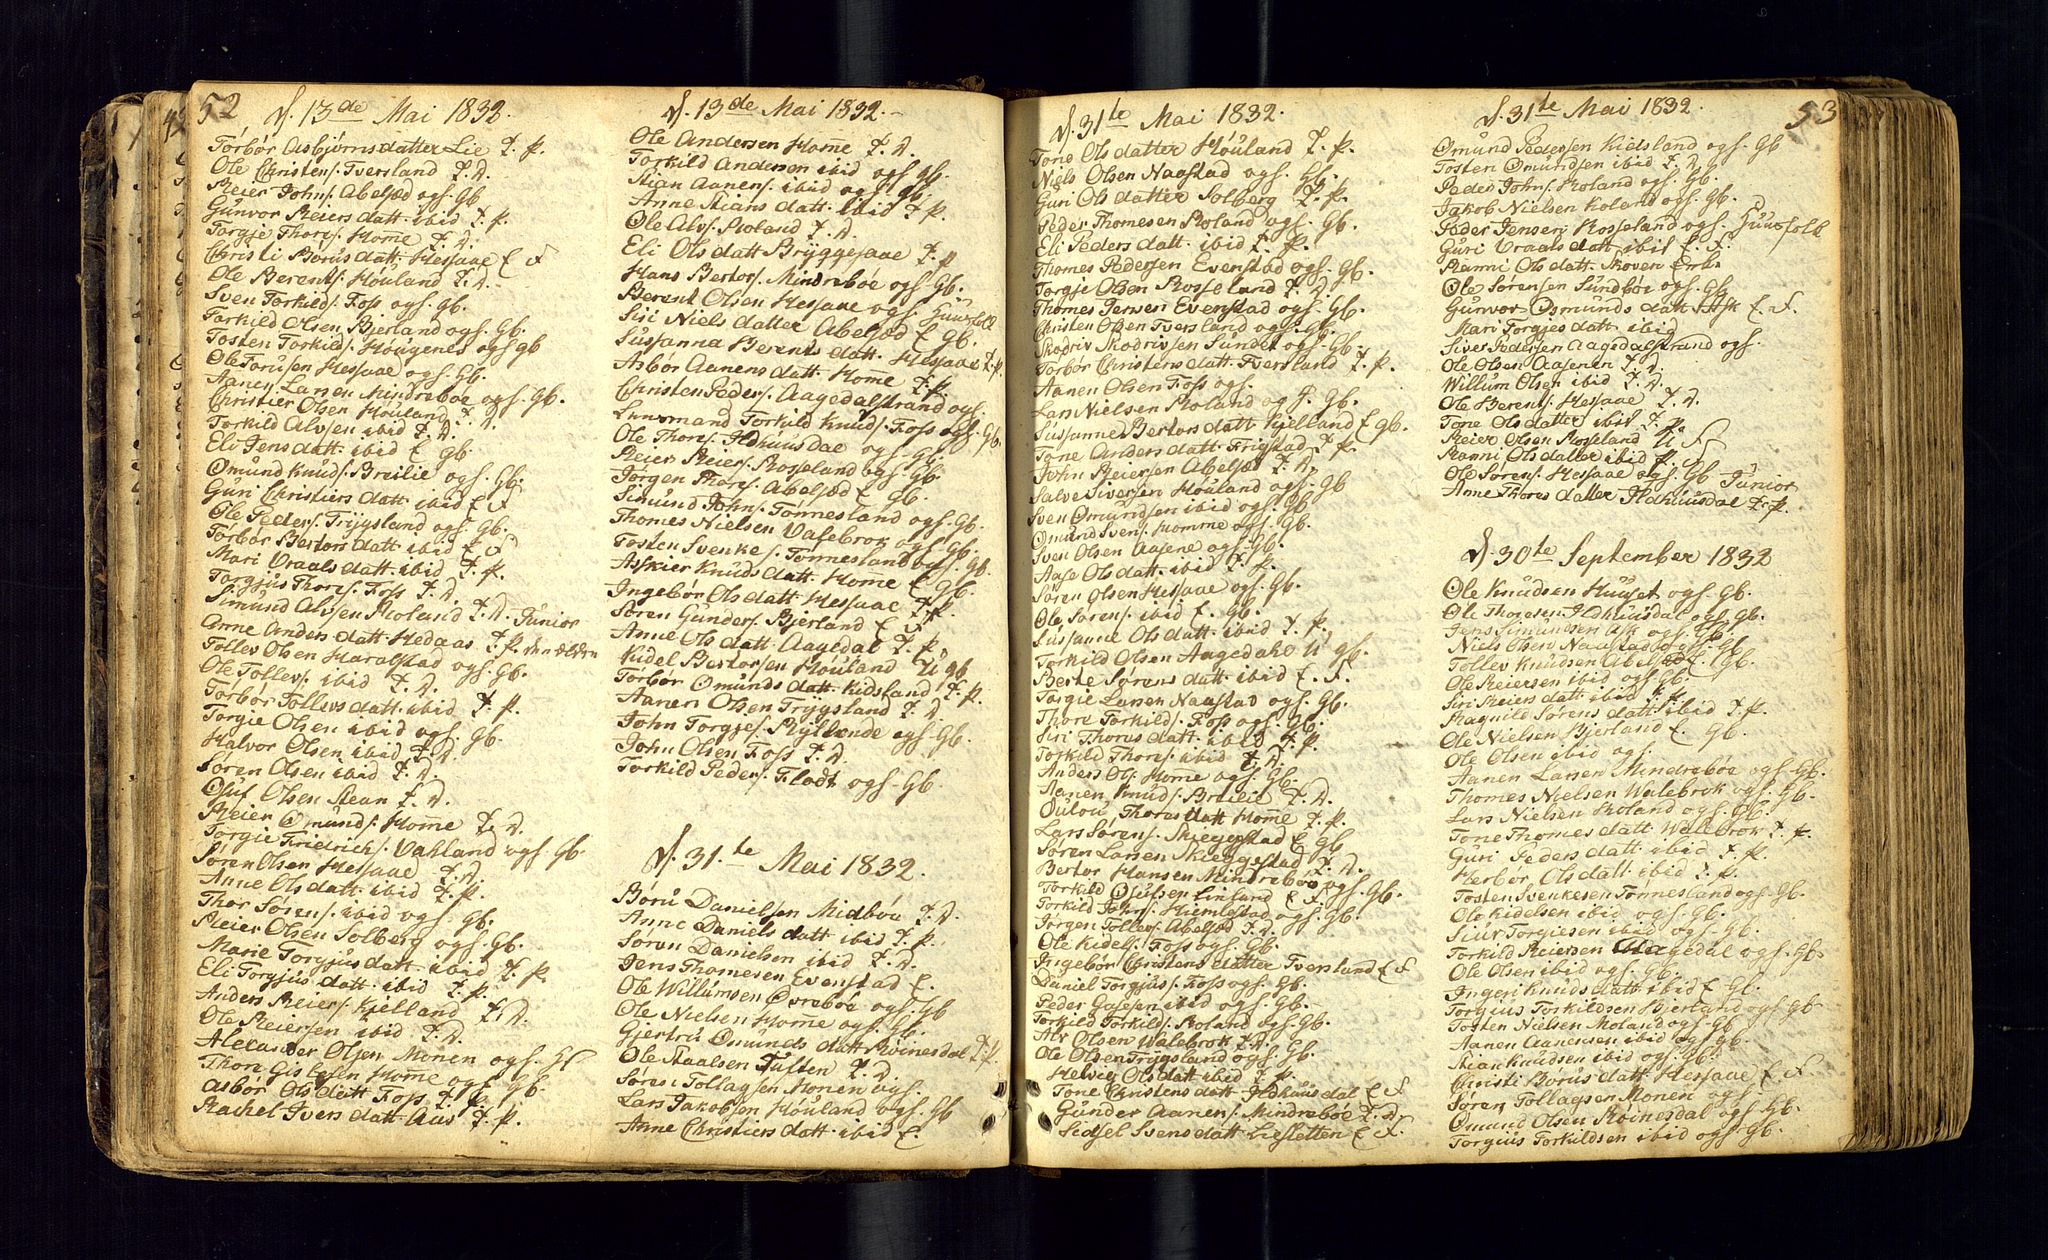 52
d. 13de Mai 1832.
Torbór Asbjórnsdatter Lie T. P.
Ole Christens. Tversland T. D.
Reier Johns. Abelsæd ogs. Gb
Gunvor Reiers datt. ibid T. P.
Torgje Thores. Home T. D.
Christi Børus datt. Hessaae E F
Ole Berents. Hóuland T. D.
Sven Torkilds. Foss ogs. Gb.
Torkild Olsen Bjerland ogs. Gb.
Tosten Torkilds. Hóugenes ogs Gb
Ole Torusen Hessaae ogs. Gb.
Aanen Larsen Mindrebøe ogs. Gb.
Christier Olsen Hóuland T. D.
Torkild Alvsen ibid T. D.
Eli Jens datt. ibid E Gb.
Omund Knuds. Breilie ogs. Gb.
Guri Christiers datt. ibid E F
Ole Peders. Trygsland ogs. Gb.
Torbór Bertors datt. ibid E F
Mari Vraals datt. ibid T. P.
Torgjus Thores. Foss T. D.
Simund Alvsen Roland T. D. Junior
Anne Anders datt. Hedaas T. P. den ælden
Tollev Olsen Haralstad ogs. Gb.
Ole Tollevs. ibid T. D.
Torbór Tollevs datt. ibid T. P.
Torgie Olsen ibid ogs. Gb.
Halvor Olsen ibid T. D.
Søren Olsen ibid T. D.
Oluf Olsen Stean T. D.
Reier Omunds. Home T. D.
Torgie Friedrichs. Vahland ogs. Gb.
Søren Olsen Hessaae T. D.
Anne Ols datt. ibid T. P.
Thor Sørens. ibid ogs. Gb.
Reier Olsen Solberg ogs. Gb.
Marie Torgjus datt. ibid T. P.
Eli Torgjus datt. ibid T. P.
Anders Reiers. Kjelland T. D.
Ole Reiersen ibid T. D.
Alexander Olsen Monen ogs. Gb
Thore Gislesen Home ogs. Gb.
Asbór Ols datt Foss T. P.
Rachel Ivers datt. Aas T. P.
d. 13de Mai 1832.
Ole Andersen Home T. D.
Torkild Andersen ibid ogs. Gb.
Stian Aanens. ibid ogs. Gb.
Anne Stians datt. ibid T. P.
Ole Alvs. Roland T. D.
Eli Ols datt Bryggesaae T. P
Hans Bertors. Mindrebøe ogs. Gb.
Berent Olsen Hessaae ogs. Huusfolk
Siri Niels datter Abelsæd E Gb.
Sussanna Berents datt. Hessaae T. P.
Asbór Aanens datt. Home T. P.
Christen Peders. Aagedalstrand ogs.
Lensmand Torkild Knuds. Foss ogs. Gb.
Ole Thores. Ildhuusdal ogs. Gb.
Reier Reiers. Rosseland ogs. Gb.
Jørgen Thores. Abelsæd E Gb.
Simund Johns. Tonnesland ogs. Gb.
Thomes Nielsen Valebrok ogs. Gb.
Tosten Svenkes. Tonnesland ogs. Gb.
Asskier Knuds datt. Home E Gb.
Ingebór Ols datt. Hessaae T. P.
Søren Gunders. Bjerland E F
Anne Ols datt. Aagedal T. P.
Kidel Bertorsen Hóuland U Gb
Torbór Omunds datt. Kidsland T. P.
Aanen Olsen Trygsland T. D.
John Torgjes. Ryllende ogs. Gb.
John Olsen Foss T. D.
Torkild Peders. Flodt ogs. Gb.
d. 31.te Mai 1832.
Børu Danielsen Midbøe T. D.
Anne Daniels datt ibid T. P.
Søren Danielsen ibid T. D.
Jens Thomesen Evenstad E.
Ole Willumsen Øvrebøe ogs. Gb
Ole Nielsen Home ogs. Gb.
Gjertru Omunds datt. Røinesdal T. P.
Ole Staalsen Tuften T. D.
Søren Tollagsen Monen ogs.
Lars Jakobsen Hóuland ogs. Gb
Anne Christiers datt. ibid E.
d. 31te Mai 1832.
Tone Ols datter Hóuland T. P.
Niels Olsen Naastad ogs. Gb.
Guri Ols datter Solberg T. P.
Peder Thomesen Roland ogs. Gb.
Eli Peders datt. ibid T. P.
Thomes Pedersen Evenstad ogs. Gb.
Torgje Olsen Rosseland T. D.
Thomes Jensen Evenstad ogs. Gb.
Christen Olsen Tversland ogs. Gb.
Skodriv Skodrivsen Sundet ogs. Gb.
Torbór Christens datt. Tversland T. P.
Aanen Olsen Foss ogs.
Lars Nielsen Roland og F. Gb.
Sussanne Bertors datt. Kjelland E Gb.
Tone Anders datt. Frigstad T. P.
John Reiersen Abelsæd T. D.
Salve Siversen Hóuland ogs. Gb
Sven Omundsen ibid ogs. Gb
Omund Svens. Homme ogs. Gb.
Sven Olsen Aasene ogs. Gb.
Aase Ols datt. ibid T. P.
Søren Olsen Hessaae ogs. Gb.
Ole Sørens. ibid E. Gb.
Sussanne Ols datt. ibid T. P.
Torkild Olsen Aagedahl U Gb.
Berte Sørens datt. ibid E. F.
Torgie Larsen Naastad ogs. Gb.
Thore Torkilds. Foss ogs. Gb.
Siri Thores datt. ibid T. P.
Torkild Thores. ibid T. D.
Anders Ols. Home ogs. Gb.
Aanen Knuds. Breilie T. D.
Oulou Thores datt Home T. P.
Lars Sørens. Skieggestad E Gb
Søren Larsen Skieggestad T. D.
Bertor Hansen Mindrebøe ogs. Gb.
Torkild Olufsen Linland E F.
Torkild Johns. Hiemlestad ogs. Gb.
Jørgen Tollevs. Abelsæd T. D.
Ole Kidels. Foss ogs. Gb.
Ingebór Christens datter Tversland E F
Daniel Torgjus. Foss ogs. Gb.
Peder ibid ogs. Gb.
Torkild Torkilds. Roland ogs. Gb.
Alv Olsen Walebrok T. D.
Ole Olsen Trygsland ogs. Gb.
Helvig Ols datt. ibid T. P.
Tone Christens datt. Ildhuusdal E F
Gunder Aanens. Mindrebøe T. D.
Sidsel Svens datt. Liesletten E F.
d. 31te Mai 1832.
53
Omund Pedersen Kidsland ogs. Gb
Tosten Omundsen ibid T. D.
Peder Johns. Roland ogs. Gb.
Jakob Nielsen Roland ogs. Gb.
Peder Jensen Rosseland ogs. Huusfolk
Guri Vraals datt. ibid E. F.
Ranni Ols datt. Skoven Enke
Ole Sørensen Sundbøe ogs. Gb
Gunvor Osmunds datt. Ask E. F.
Mari Torgjes datt. ibid
Siver Pedersen Aagedalstrand ogs.
Ole Olsen Aasenen T. D.
Willum Olsen ibid T. D.
Ole Berents. Hessaae T. D.
Tone Ols datter ibid T. P.
Reier Olsen Rosseland U F
Ranni Ols datter ibid
Ole Sørens. Hessaae ogs. Gb Junior
Anne Thores datter Ildhuusdal T. P.
d. 30te September 1832
Ole Knudsen Huuset ogs. Gb.
Ole Thoresen Ildhuusdal ogs. Gb.
Jens Simundsen Ask ogs. Gb.
Niels Olsen Naastad ogs. Gb
Tollev Knudsen Abelsæd E. Gb.
Ole Reiersen ibid ogs. Gb.
Siri Reiers datt ibid
Ragnild Sørens datt. ibid T. P.
Ole Nielsen Bjerland E. Gb.
Ole Olsen ibid ogs.
Aanen Larsen Mindrebøe ogs. Gb.
Thomes Nielsen Walebrok ogs. Gb.
Lars Nielsen Roland ogs. Gb.
Tone Thomes datt Walebrok T. P.
Guri Peders datt. ibid T. P.
Herbór Ols datt. ibid T. P.
Tosten Svenkesen Tonnesland ogs. Gb.
Ole Kidelsen ibid ogs. Gb.
Siur Torgiesen ibid ogs. Gb.
Torkild Reiersen Aagedal ogs. Gb.
Ole Olsen ibid ogs. Gb.
Ingeri Knuds datt. ibid E Gb.
Torgius Torkildsen Bjerland ogs. Gb
Tosten Nielsen Moland ogs Gb
Aanen Aanensen ibid ogs Gb
Stian Knudsen ibid ogs. Gb.
Christi Børus datt. Hessaae E. F.
Søren Tollagsen Monen ogs.
Omund Olsen Røinesdal ogs. Gb.
Torgius Torkildsen ibid ogs. Gb.